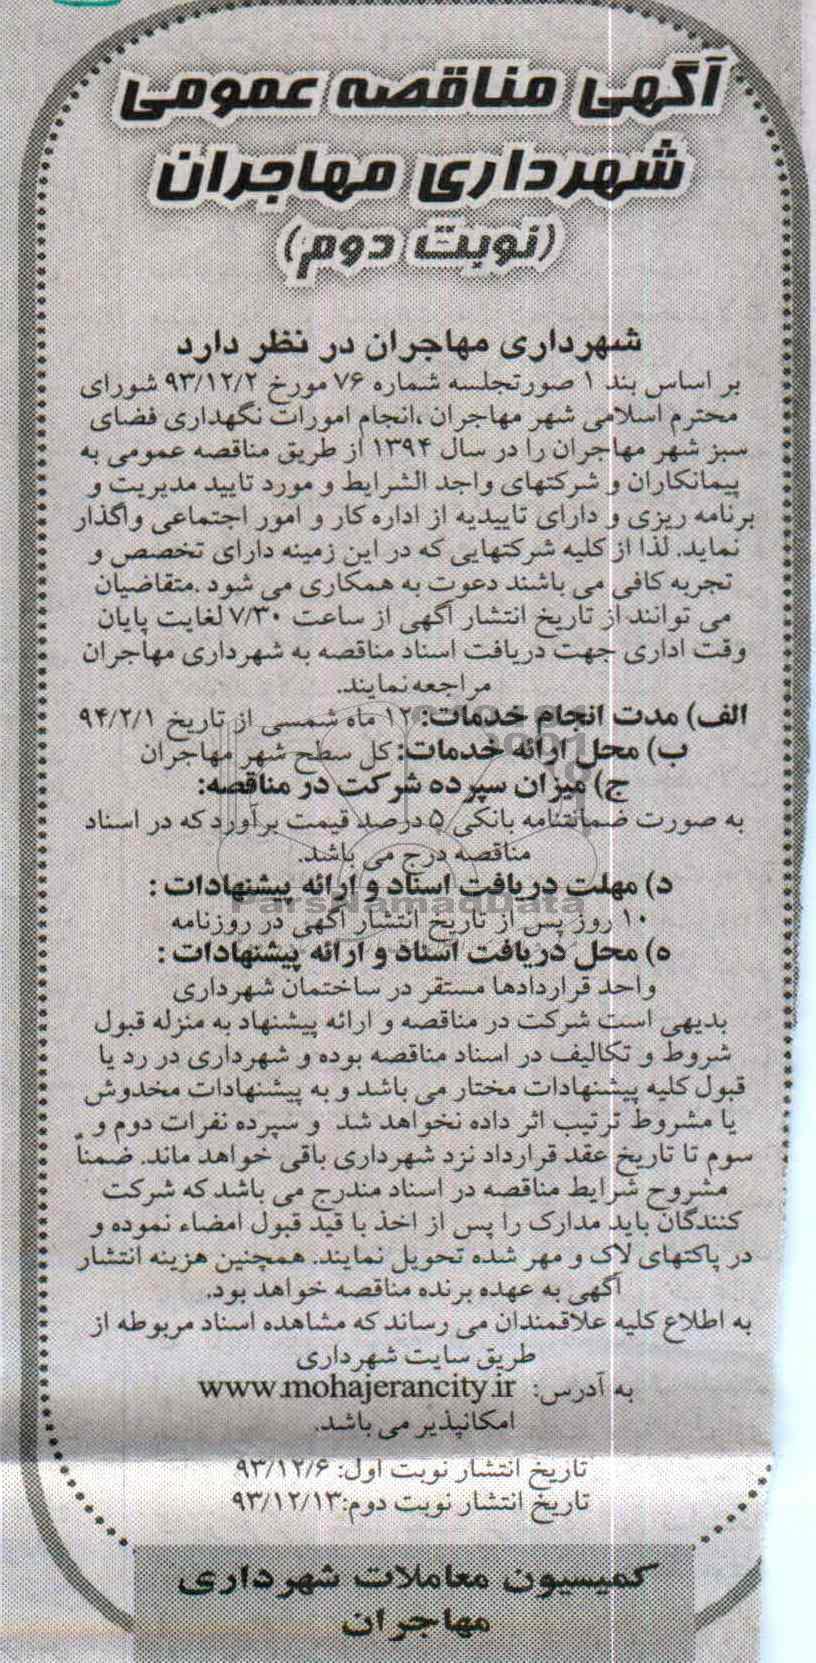 آگهی مناقصه عمومی
شهرداری مهاجران
(نوبت دوم)
شهرداری مهاجران در نظر دارد
بر اساس بند ۱ صورتجلسه شماره ۷۶ مورخ ۹۳/۱۲/۲ شورای
محترم اسلامی شهر مهاجران ،انجام امورات نگهداری فضای
سبز شهر مهاجران را در سال ۱۳۹۴ از طریق مناقصه عمومی به
پیمانکاران و شرکتهای واجد الشرایط و مورد تایید مدیریت و
برنامه ریزی و دارای تاییدیه از اداره کار و امور اجتماعی واگذار
نماید. لذا از کلیه شرکتهایی که در این زمینه دارای تخصص و
تجربه کافی می باشند دعوت به همکاری می شود .متقاضیان
می توانند از تاریخ انتشار آگهی از ساعت ۷/۳۰ لغایت پایان
وقت اداری جهت دریافت اسناد مناقصه به شهرداری مهاجران
مراجعه نمایند.
الف) مدت انجام خدمات: ۱۲ ماه شمسی از تاریخ ۹۴/۲/۱
ب) محل ارائه خدمات: کل سطح شهر مهاجران
ج) میزان سپرده شرکت در مناقصه:
به صورت ضمانتنامه بانکی ۵ درصد قیمت برآورد که در اسناد
مناقصه درج می باشد.
د) مهلت دریافت اسناد و ارائه پیشنهادات :
ParsNamadData
۱۰ روز پس از تاریخ انتشار آگهی در روزنامه
ه) محل دریافت اسناد و ارائه پیشنهادات :
واحد قراردادها مستقر در ساختمان شهرداری
بدیهی است شرکت در مناقصه و ارائه پیشنهاد به منزله قبول
شروط و تکالیف در اسناد مناقصه بوده و شهرداری در رد یا
قبول کلیه پیشنهادات مختار می باشد و به پیشنهادات مخدوش
یا مشروط ترتیب اثر داده نخواهد شد و سپرده نفرات دوم و
سوم تا تاریخ عقد قرارداد نزد شهرداری باقی خواهد ماند. ضمناً
مشروح شرایط مناقصه در اسناد مندرج می باشد که شرکت
کنندگان باید مدارک را پس از اخذ با قید قبول امضاء نموده و
در پاکتهای لاک و مهر شده تحویل نمایند. همچنین هزینه انتشار
آگهی به عهده برنده مناقصه خواهد بود.
به اطلاع کلیه علاقمندان می رساند که مشاهده اسناد مربوطه از
طریق سایت شهرداری
به آدرس: www.mohajerancity.ir
امکانپذیر می باشد.
تاریخ انتشار نوبت اول: ۹۳/۱۲/۶
تاریخ انتشار نوبت دوم:۹۳/۱۲/۱۳
کمیسیون معاملات شهرداری
مهاجران